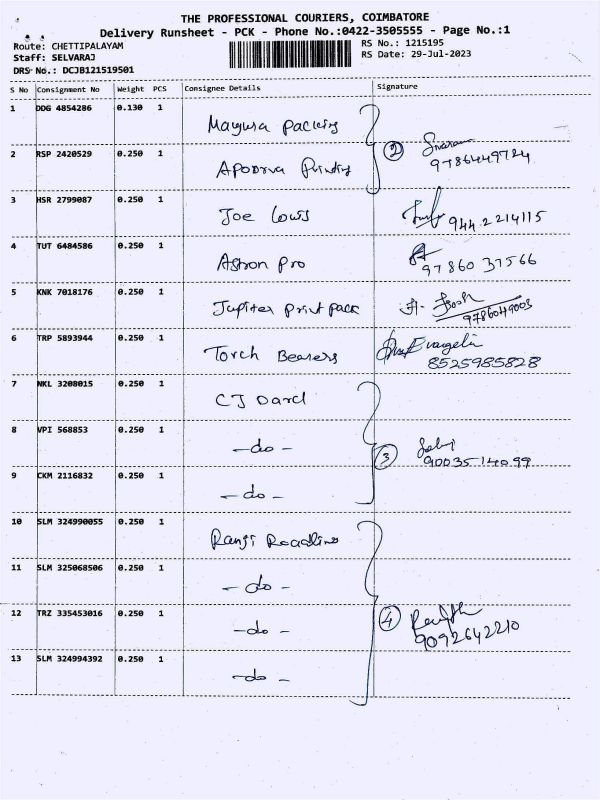 THE PROFESSIONAL COURIERS, COIMBATORE
Delivery Runsheet - PCK - Phone No.:0422-3505555 - Page No.:1
Route: CHETTIPALAYAM RS No.: 1215195
Staff: SELVARAJ RS Date: 29-Jul-2023
DRS No.: DCJB121519501
S No Consignment No Weight PCS Consignee Details Signature
1 DDG 4854286 0.130 1 Mayura packing
2 RSP 2420529 0.250 1 Apoorva Printing 2 9786449724
3 HSR 2799087 0.250 1 Joe Louis 944 2214115
4 TUT 6484586 0.250 1 Astron pro 97860 37566
5 KNK 7018176 0.250 1 Jupiter print pack
6 TRP 5893944 0.250 1 Torch Bearers Evangelin 8525985828
7 NKL 3208015 0.250 1 CJ Darcl
8 VPI 568853 0.250 1 -do- 3 90035 14099
9 CKM 2116832 0.250 1 -do-
10 SLM 324990055 0.250 1 Ranji Roadlines
11 SLM 325068506 0.250 1 -do-
12 TRZ 335453016 0.250 1 -do- 4 9092642210
13 SLM 324994392 0.250 1 -do-